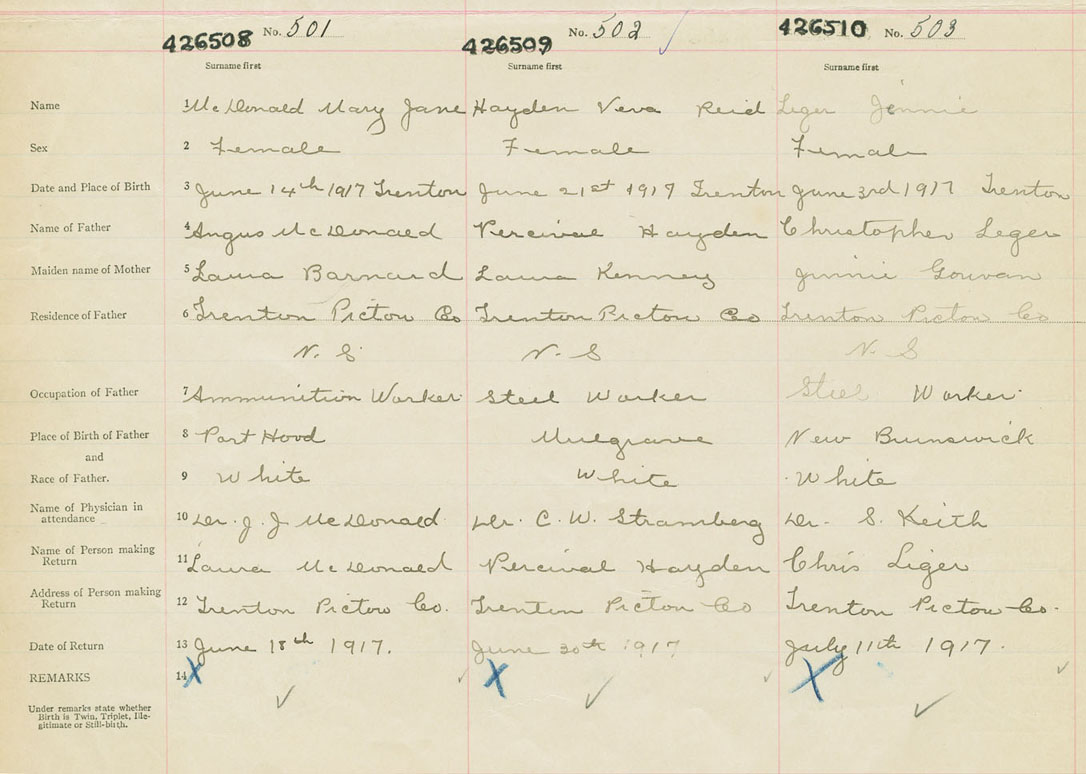 426508 No. 501 426509 No. 502 426510 No. 503
Surname first Surname first Surname first
Name 1 McDonald Mary Jane Hayden Veva Reid Leger Jennie
Sex 2 Female Female Female
Date and Place of Birth 3 June 14th 1917 Trenton June 21st 1917 Trenton June 3rd 1917 Trenton
Name of Father 4 Angus McDonald Percival Hayden Christopher Leger
Maiden name of Mother 5 Laura Barnard Laura Kenney Jinnie Gouvan
Residence of Father 6 Trenton Pictou Co Trenton Pictou Co Trenton Pictou Co
N. S. N. S N. S
Occupation of Father 7 Ammunition Worker Steel Worker Steel Worker
Place of Birth of Father 8 Port Hood Mulgrave New Brunswick
and
Race of Father. 9 White White White
Name of Physician in
attendance 10 Dr. J. J. McDonald Dr. C. W. Stramberg Dr. S. Keith
Name of Person making
Return 11 Laura McDonald Percival Hayden Chris Liger
Address of Person making
Return 12 Trenton Pictou Co. Trenton Pictou Co Trenton Pictou Co.
Date of Return 13 June 18th 1917. June 30th 1917 July 11th 1917.
REMARKS 14 X X X
Under remarks state whether
Birth is Twin, Triplet, Ille-
gitimate or Still-birth.